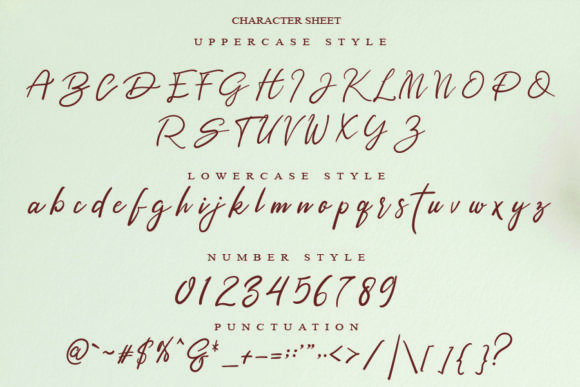 CHARACTER SHEET
UPPERCASE STYLE
A B C D E F G H I J K L M N O P Q
R S T U V W X Y Z
LOWERCASE STYLE
a b c d e f g h i j k l m n o p q r s t u v w x y z
NUMBER STYLE
0 1 2 3 4 5 6 7 8 9
PUNCTUATION
@ ` ~ # $ % ^ & * _ + - = ; : ' " , . < > / | \ [ ] { } ?